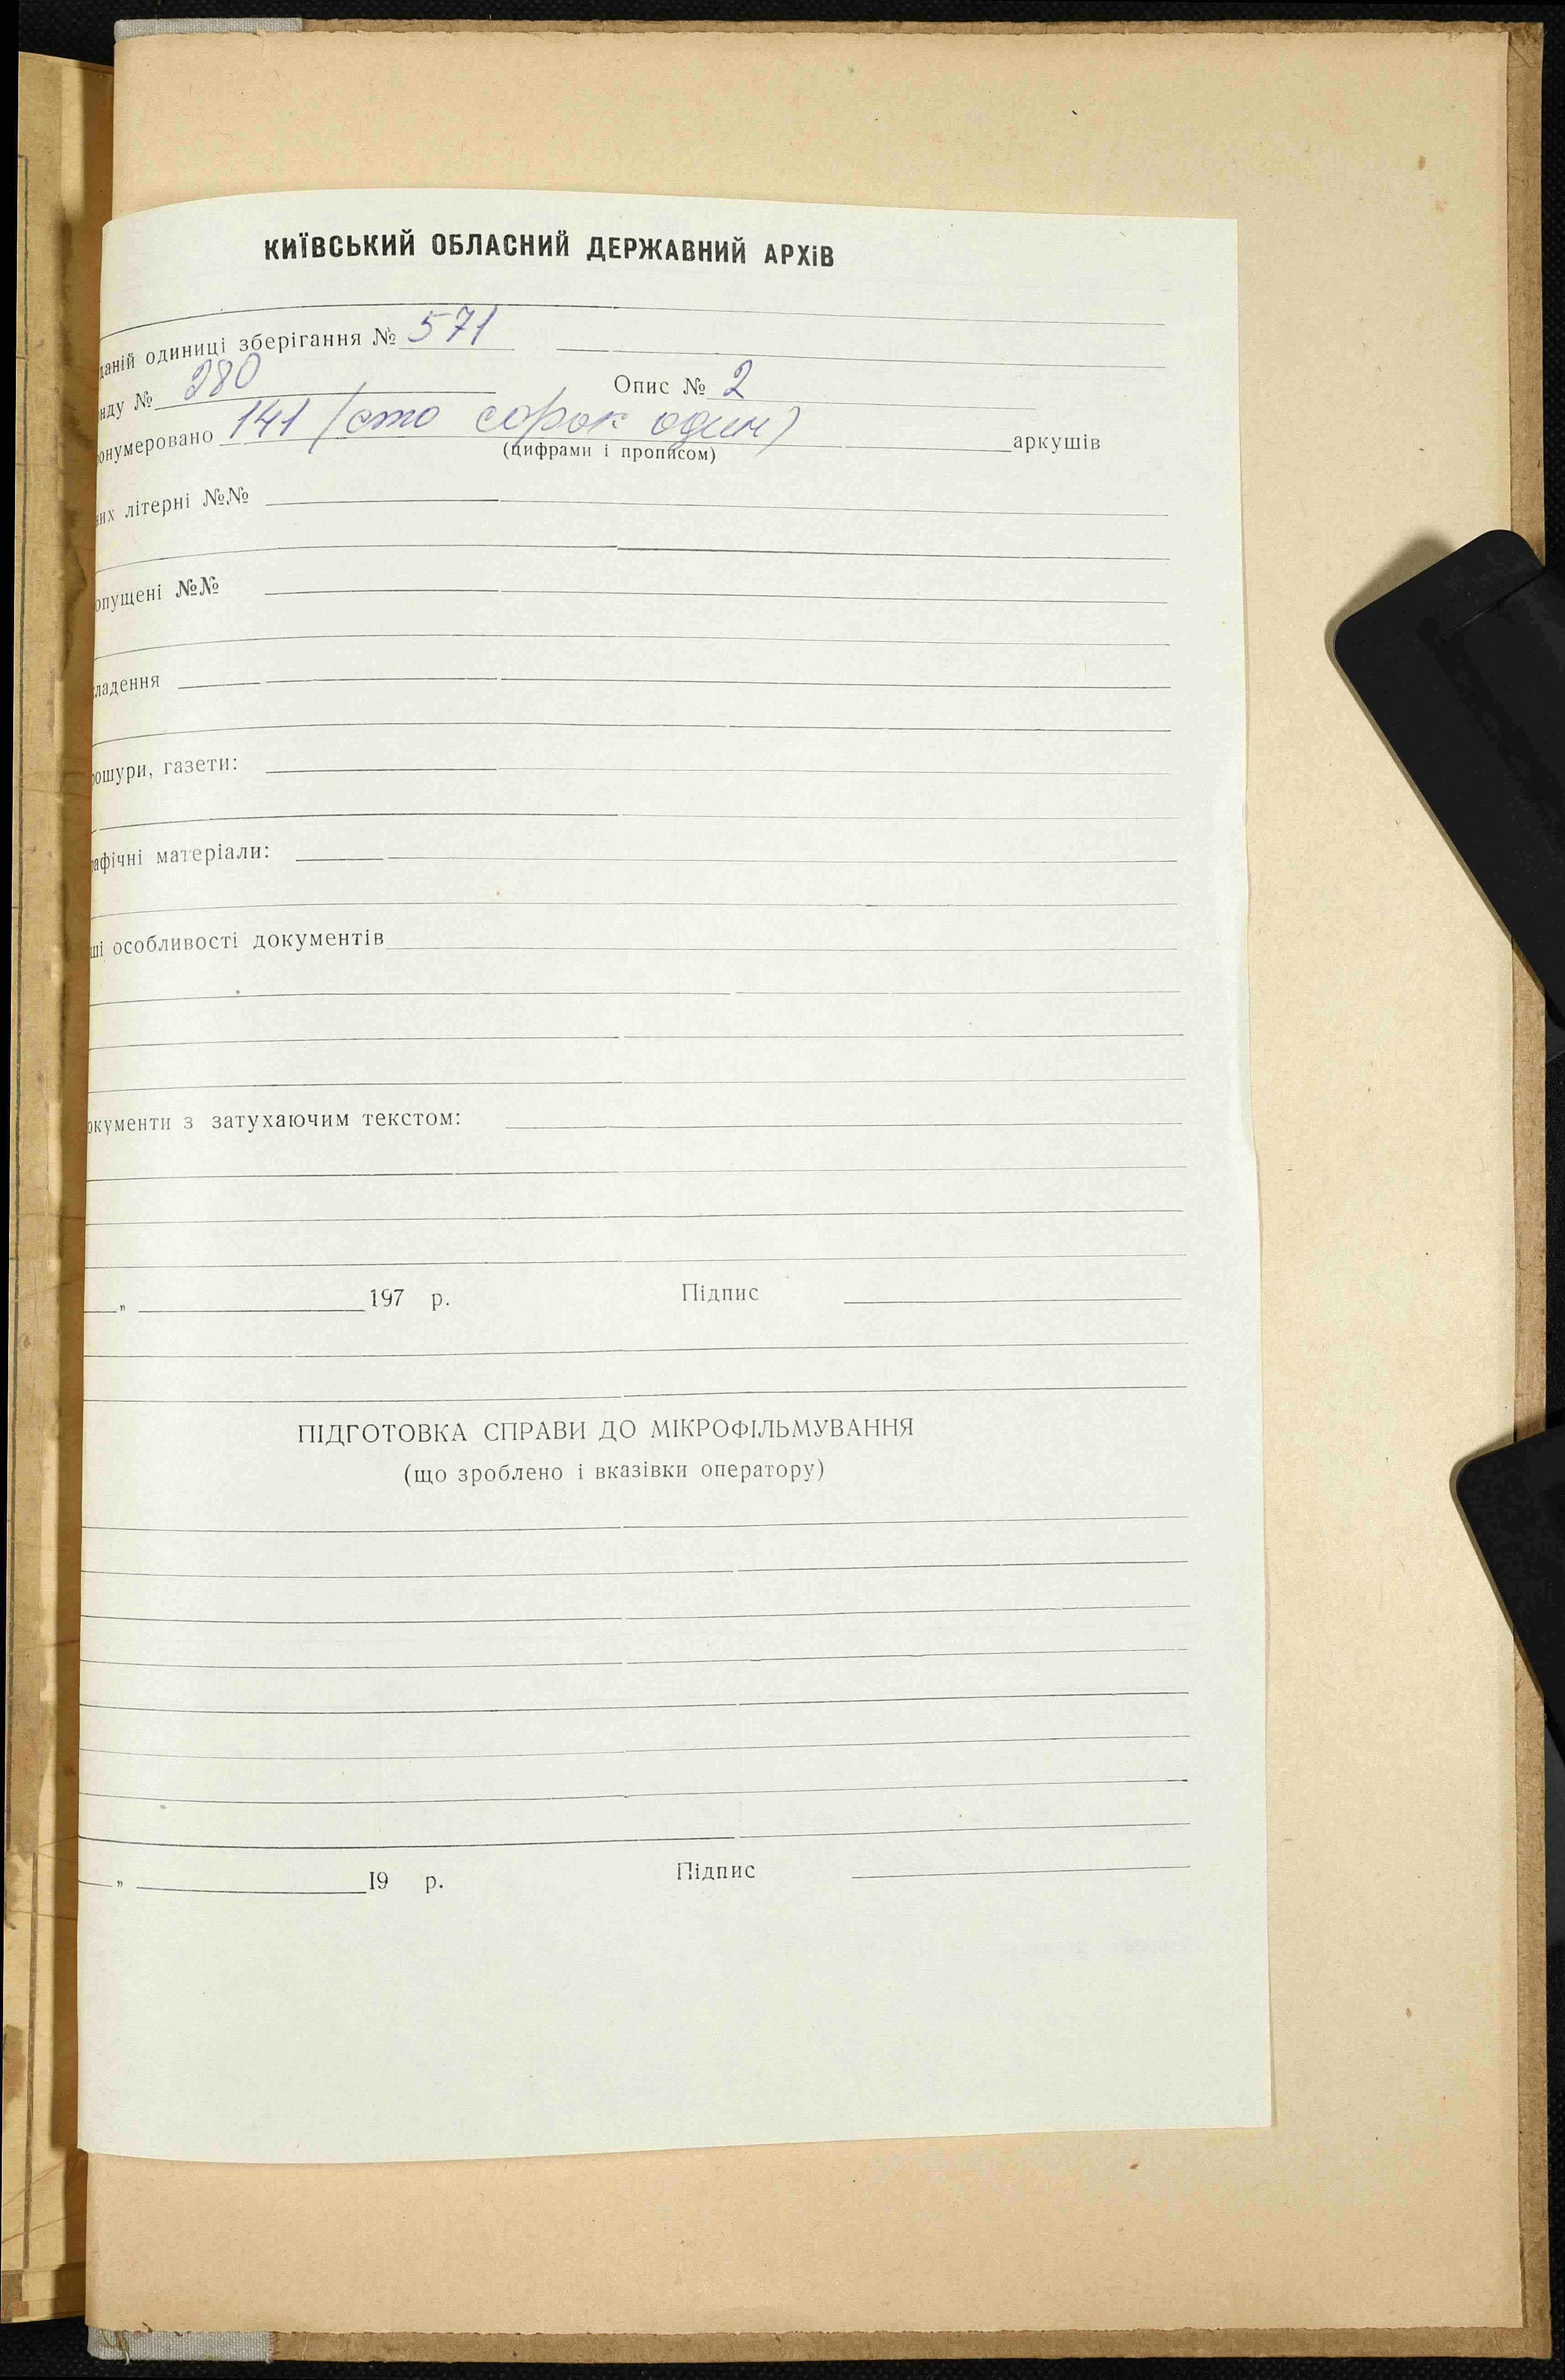 КИЇВСЬКИЙ ОБЛАСНИЙ ДЕРЖАВНИЙ АРХІВ
даній одиниці зберігання № 571
нду № 280 Опис № 2
онумеровано 141 (сто сорок один) аркушів
(цифрами і прописом)
них літерні №№
опущені №№
ладення
ошури, газети:
афічні матеріали:
ші особливості документів
окументи з затухаючим текстом:
„ 197 р. Підпис
ПІДГОТОВКА СПРАВИ ДО МІКРОФІЛЬМУВАННЯ
(що зроблено і вказівки оператору)
„ 19 р. Підпис